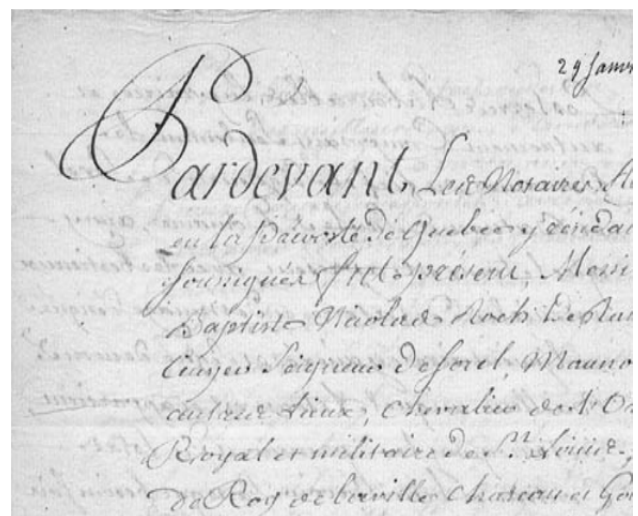 29 Janv
Pardevant Les Notaires
en la Prevosté de Quebec y résida
soussignez fut présent, Messi
Baptiste Nicolas Roch De Ra
Ecuyer Seigneur de Sorel,
autres Lieux, Chevalier de L'Or
Royal et militaire de St. Louis,
de Roy de la ville chateau et Gou